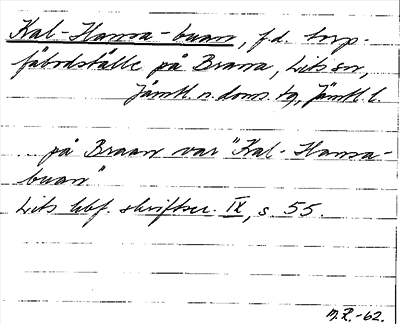 Kal-Hansa-buan, f.d. torp-
fäbodställe på Brana, Lits sn,
Jämtl. n. doms. tg, Jämtl. l.
... på Braan var "Kal-Hansa-
buan."
Lits hbf. skriftser. IX, s. 55.
M.R.-62.